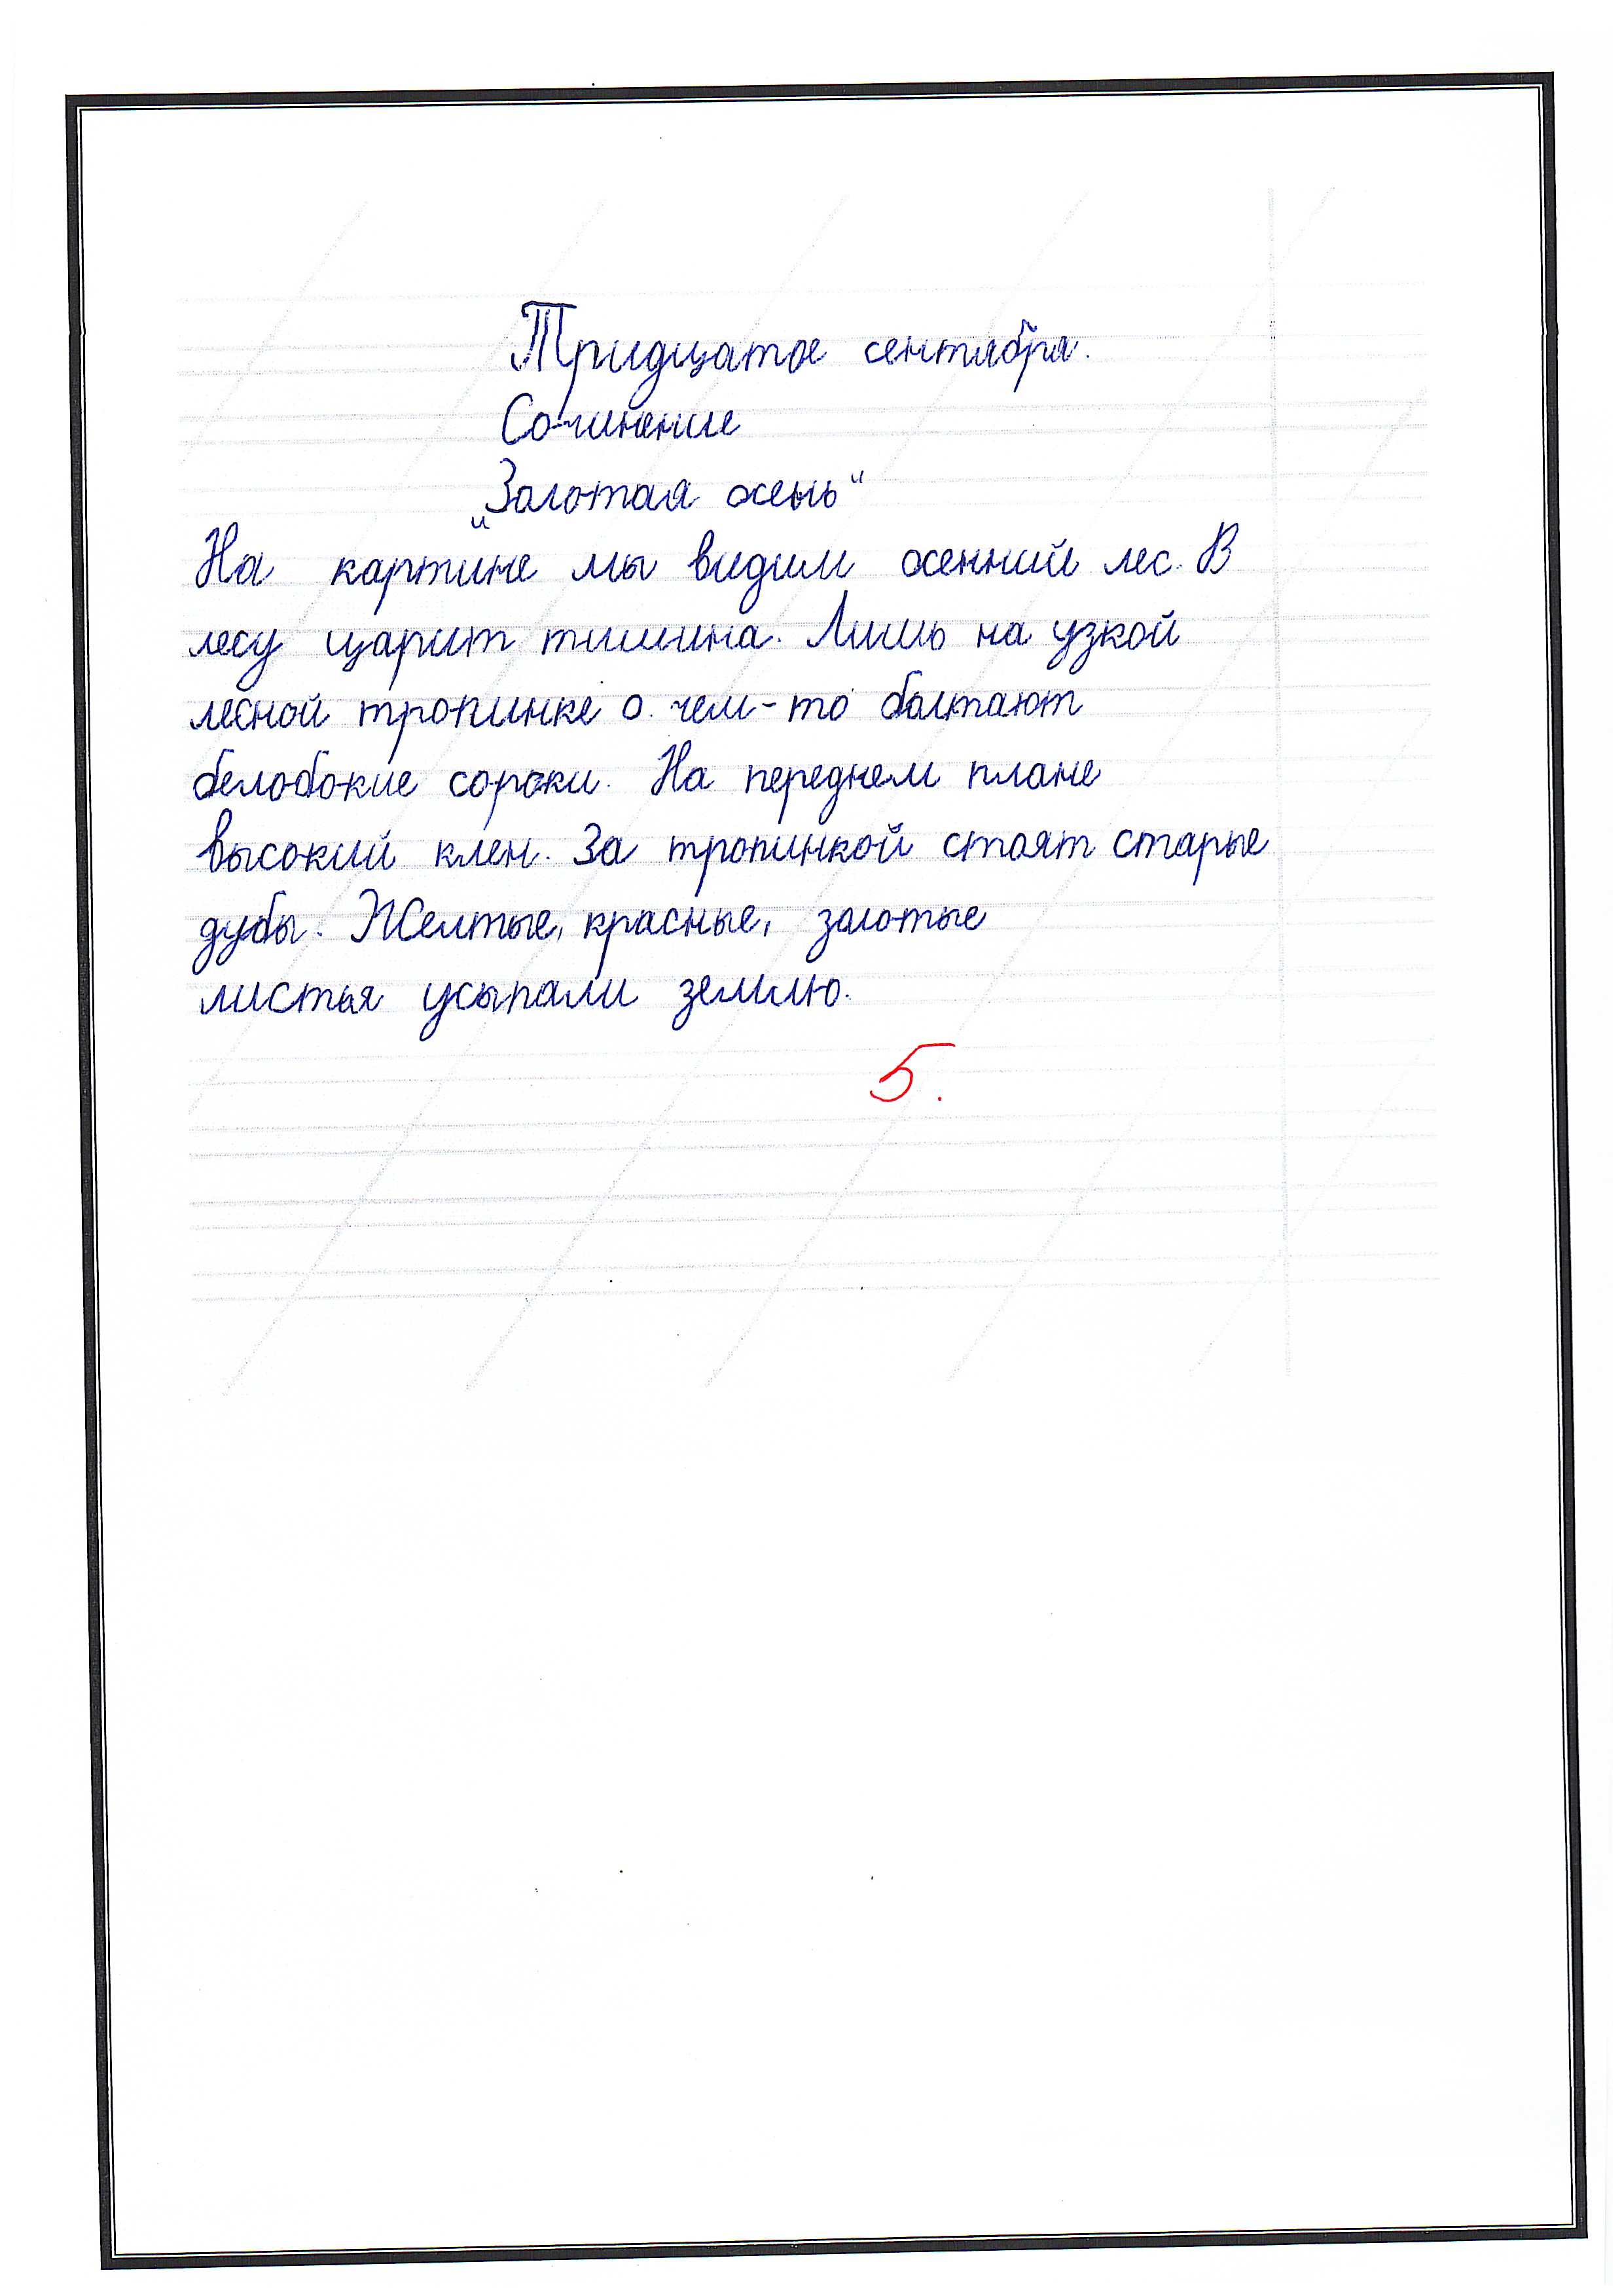 Тридцатое сентября.
Сочинение
„Золотая осень“
На картине мы видим осенний лес. В
лесу царит тишина. Лишь на узкой
лесной тропинке о чем-то болтают
белобокие сороки. На переднем плане
высокий клен. За тропинкой стоят старые
дубы. Желтые, красные, золотые
листья усыпали землю.
5.